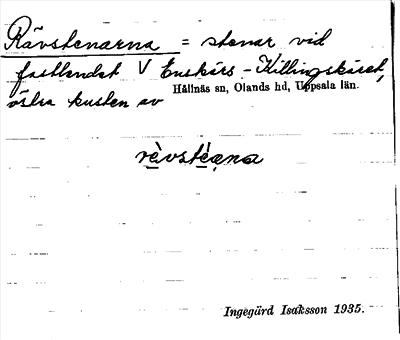 Rävstenarna = stenar vid
fastlandet V Enskärs-Killingskäret,
östra kusten av Hållnäs sn, Olands hd, Uppsala län.
rèvstèɑna
Ingegärd Isaksson 1935.